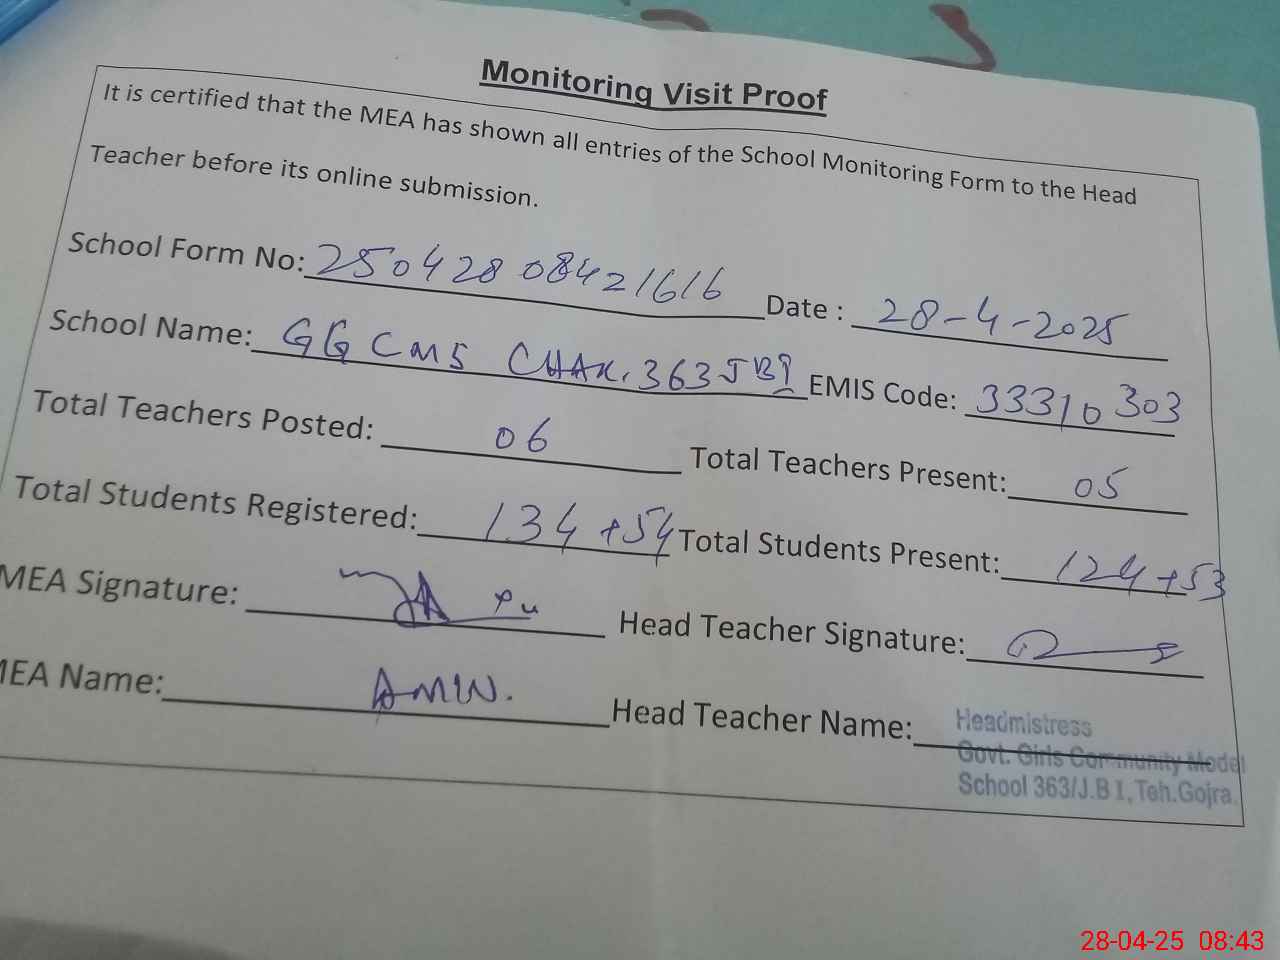 Monitoring Visit Proof
It is certified that the MEA has shown all entries of the School Monitoring Form to the Head
Teacher before its online submission.
School Form No: 25042808421616 Date : 28-4-2025
School Name: GGCMS CHAK. 363 JB I EMIS Code: 33310303
Total Teachers Posted: 06 Total Teachers Present: 05
Total Students Registered: 134+54 Total Students Present: 124+53
MEA Signature: Head Teacher Signature:
MEA Name: AMIN. Head Teacher Name:
Headmistress
Govt. Girls Community Model
School 363/J.B I, Teh.Gojra.
28-04-25 08:43